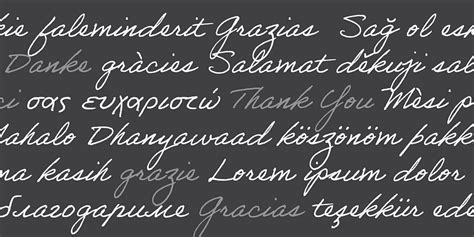 kie faleminderit Grazias Sağ ol esk
Danke gràcies Salamat děkuji sal
ci σας ευχαριστώ Thank You Mèsi p
Mahalo Dhanyawaad köszönöm þakk
ma kasih grazie Lorem ipsum dolor
благодариме Gracias teşekkür ed